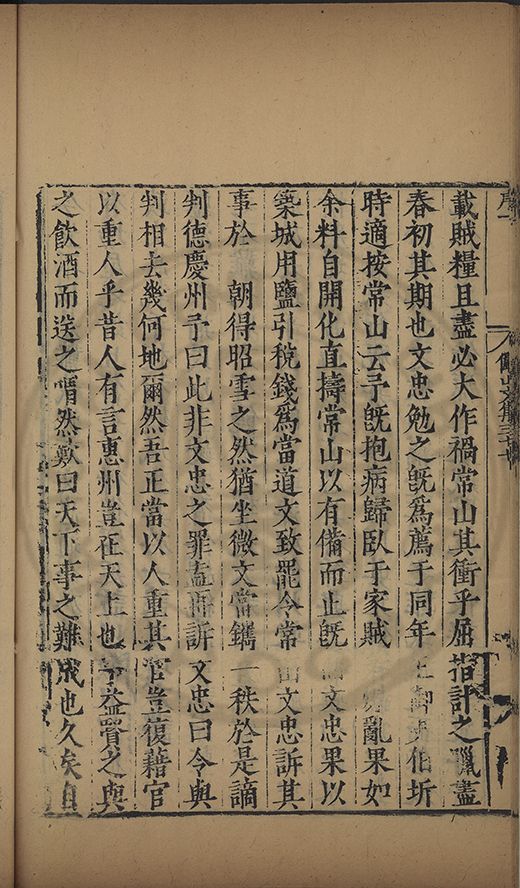 載賊糧且盡必大作禍常山其衝乎屈指計之臘盡
春初其期也文忠勉之旣爲薦于同年王御史伯圻
時適按常山云予旣抱病歸臥于家賊亂果如
余料自開化直擣常山以有備而止旣文忠果以
築城用鹽引稅錢爲當道文致罷今常山文忠訴其
事於 朝得昭雪之然猶坐微文當鐫一秩於是謫
判德慶州予曰此非文忠之罪盍再訴文忠曰今與
判相去幾何地爾然吾正當以人重其官豈復藉官
以重人乎昔人有言惠州豈在天上也予益賢之與
之飲酒而送之喟然歎曰天下事之難成也久矣自